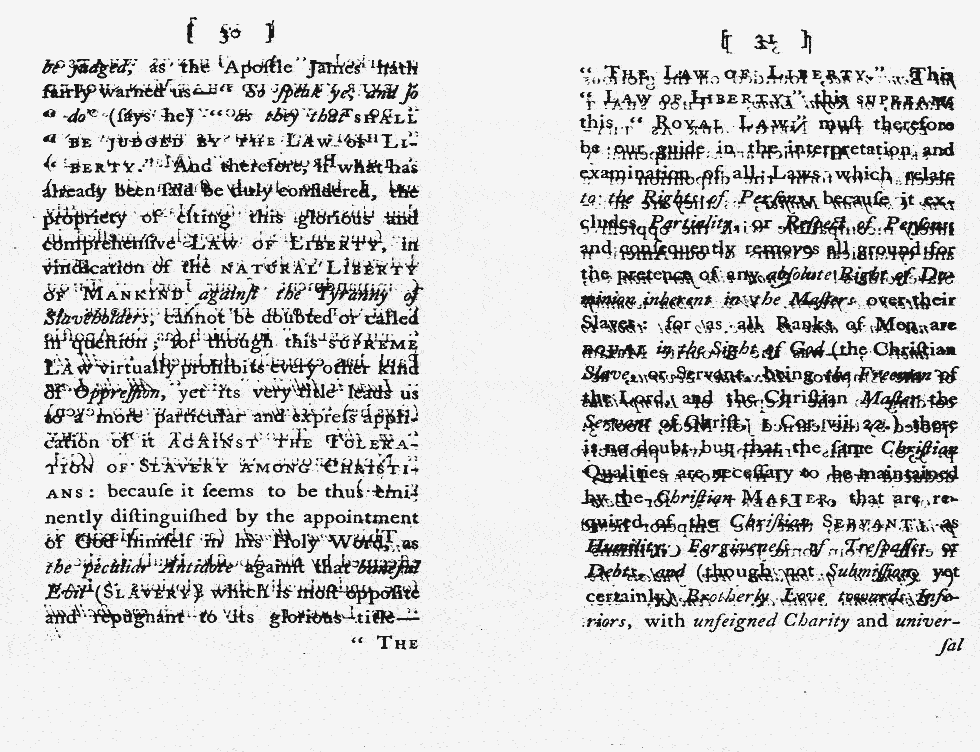 [ 30 ]
be judged, as the Apoſtle James hath
fairly warned us—" So ſpeak ye, and ſo
" do" (ſays he) " as they that SHALL
" BE JUDGED BY THE LAW OF LI-
" BERTY." And therefore, if what has
already been ſaid be duly conſidered, the
propriety of citing this glorious and
comprehenſive LAW OF LIBERTY, in
vindication of the NATURAL LIBERTY
OF MANKIND againſt the Tyranny of
Slaveholders, cannot be doubted or called
in queſtion; for though this SUPREME
LAW virtually prohibits every other kind
of Oppreſſion, yet its very title leads us
to a more particular and expreſs appli-
cation of it AGAINST THE TOLERA-
TION OF SLAVERY AMONG CHRISTI-
ANS: becauſe it ſeems to be thus emi-
nently diſtinguiſhed by the appointment
of God himſelf in his Holy Word, as
the peculiar Antidote againſt that baneful
Evil (SLAVERY) which is moſt oppoſite
and repugnant to its glorious title—
" THE
[ 31 ]
" THE LAW OF LIBERTY." This
" LAW OF LIBERTY," this SUPREME
this " ROYAL LAW," muſt therefore
be our guide in the interpretation and
examination of all Laws which relate
to the Rights of Perſons, becauſe it ex-
cludes Partiality, or Reſpect of Perſons,
and conſequently removes all ground for
the pretence of any abſolute Right of Do-
minion inherent in the Maſters over their
Slaves: for as all Ranks of Men are
EQUAL in the Sight of God (the Chriſtian
Slave, or Servant, being the Freeman of
the Lord, and the Chriſtian Maſter the
Servant of Chriſt, 1 Cor. vii. 22.) there
is no doubt but that the ſame Chriſtian
Qualities are neceſſary to be maintained
by the Chriſtian MASTER, that are re-
quired of the Chriſtian SERVANT, as
Humility, Forgiveneſs of Treſpaſſes or
Debts, and (though not Submiſſion, yet
certainly) Brotherly Love towards Infe-
riors, with unfeigned Charity and univer-
ſal